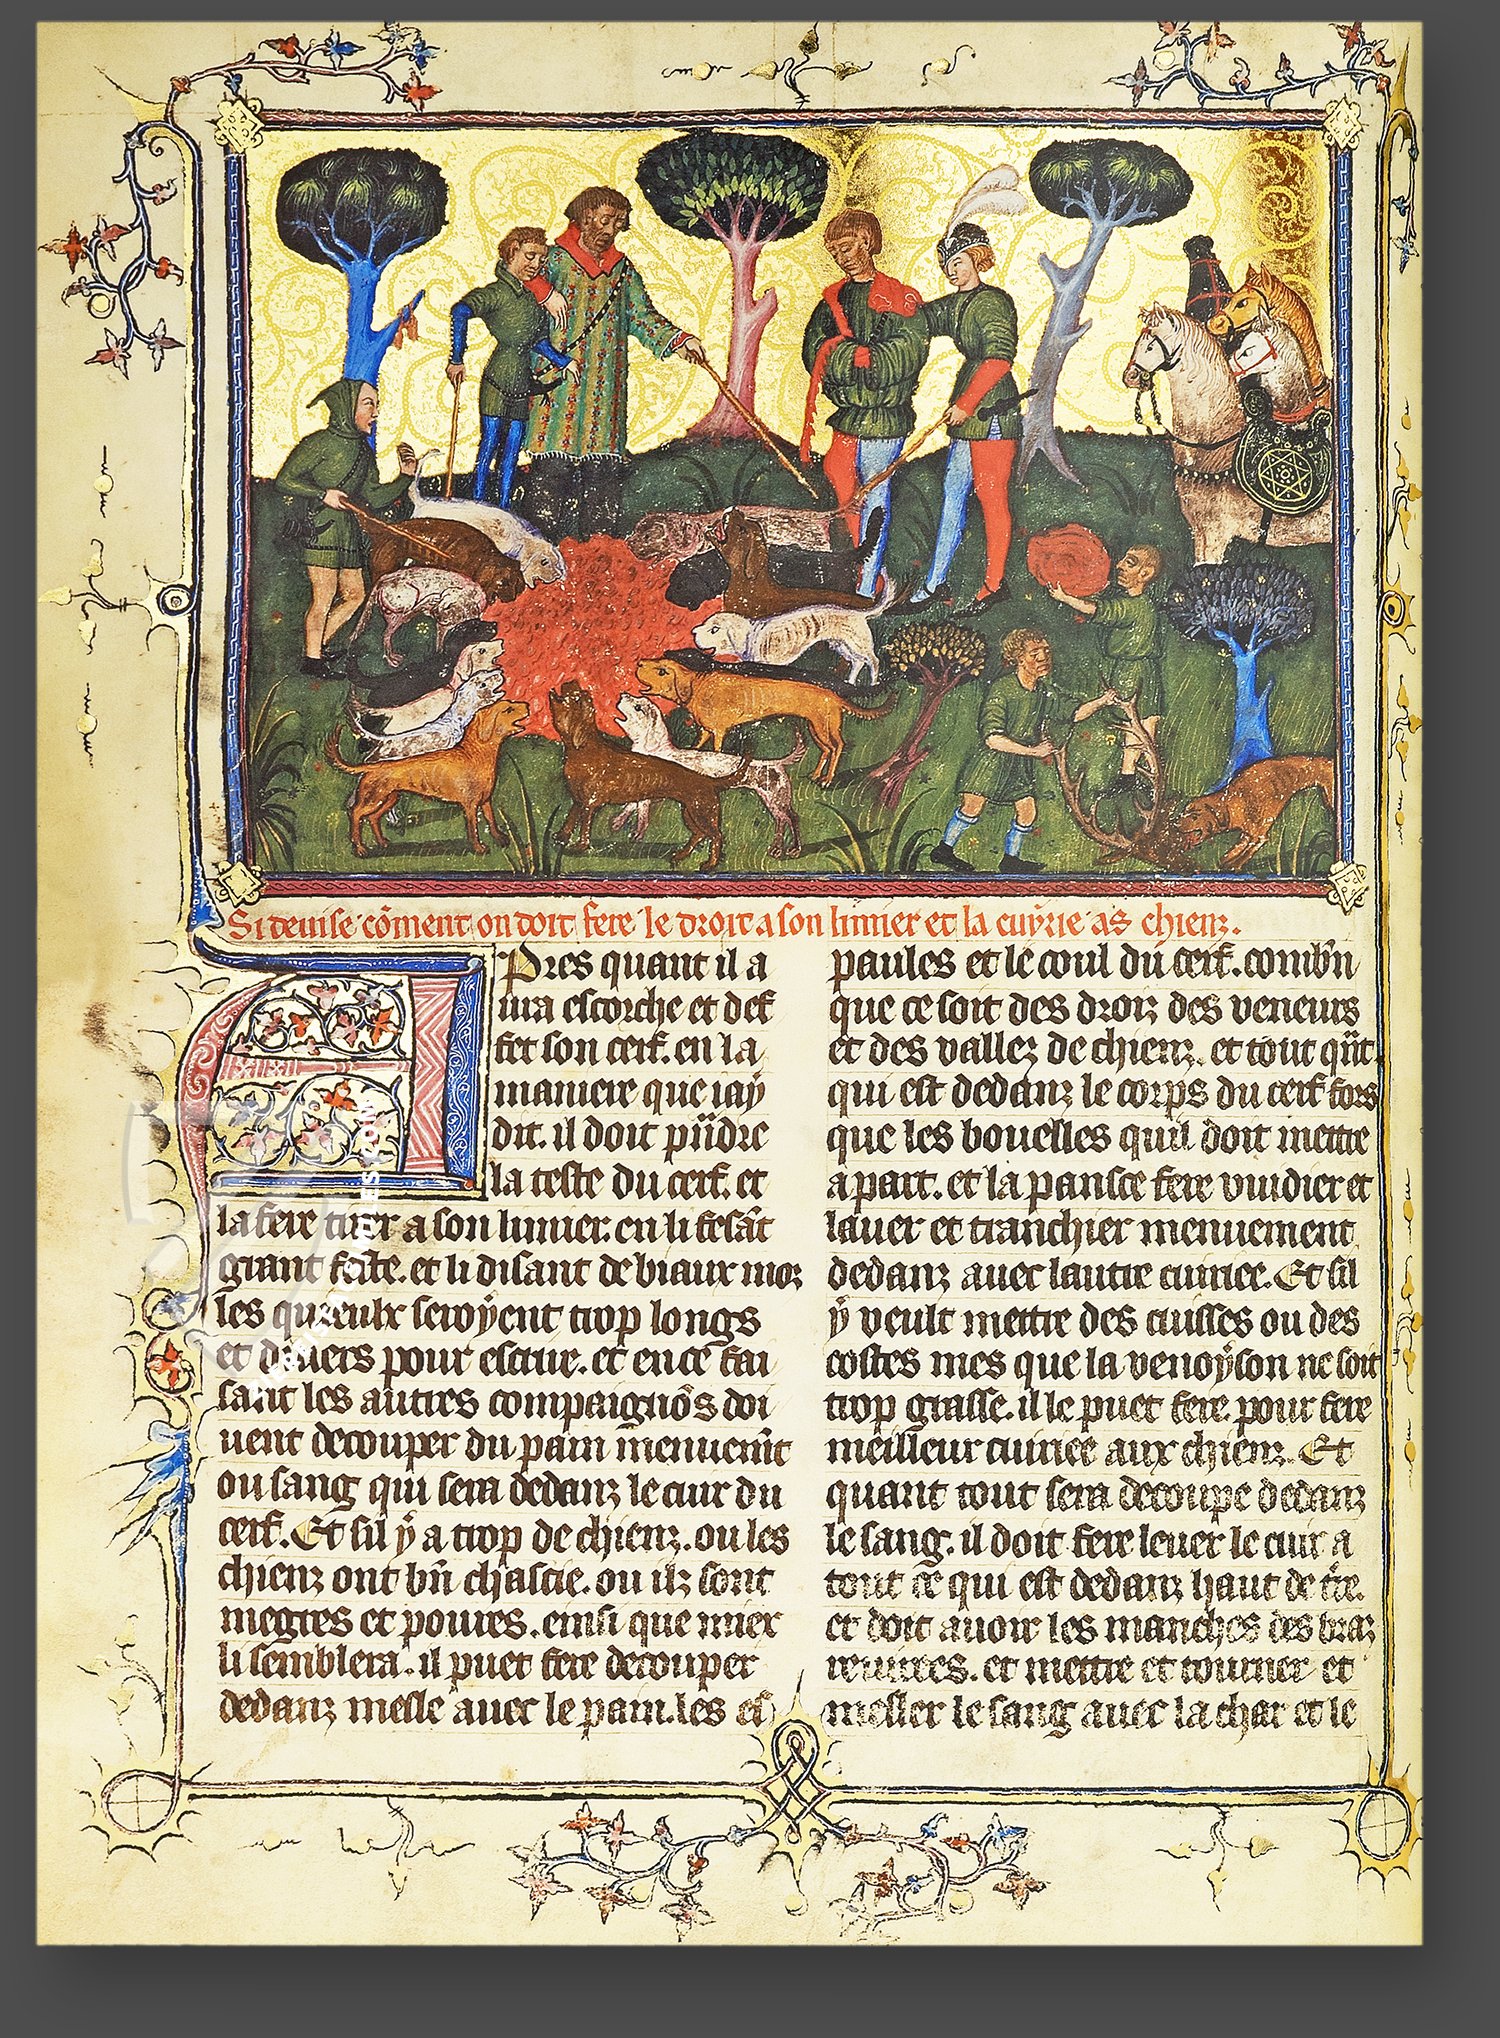 Si deuise cōment on doit fere le droit a son limier et la cuyrie as chienz.
Apres quant il a
ura escorche et def
fet son cerf. en la
maniere que iay
dit. il doit p̄ndre
la teste du cerf. et
la fere tirer a son limier. en li fesāt
grant feste. et li disant de biaux moz
les quieulx seroyent trop longs
et diuers pour escrire. et en ce fai
sant les autres compaignōs doi
uent decouper du pain menuem̄t
ou sang qui sera dedanz le cuir du
cerf. Et sil y a trop de chienz. ou les
chienz ont bn̄ chascie. ou ilz sont
megres et poures. einsi que miex
li semblera. il puet fere decouper
dedanz mesle auec le pain. les es
paules et le coul du cerf. combn̄
que ce soit des droiz des veneurs
et des vallez de chienz. et tout qn̄t
qui est dedanz le corps du cerf fors
que les bouelles quil doit mettre
a part. et la pansce fere vuidier et
lauer et tranchier menuement
dedanz auec lautre cuiriee. Et sil
y veult mettre des cuisses ou des
costes mes que la venoyson ne soit
trop grasse. il le puet fere pour fere
meilleur cuiriee aux chienz. Et
quant tout sera decoupe dedanz
le sang. il doit fere leuer le cuir a
tout ce qui est dedanz haut de t̄re.
et doit auoir les manches des braz
reuirees. et mettre et tourner et
mesler le sang auec la char et le